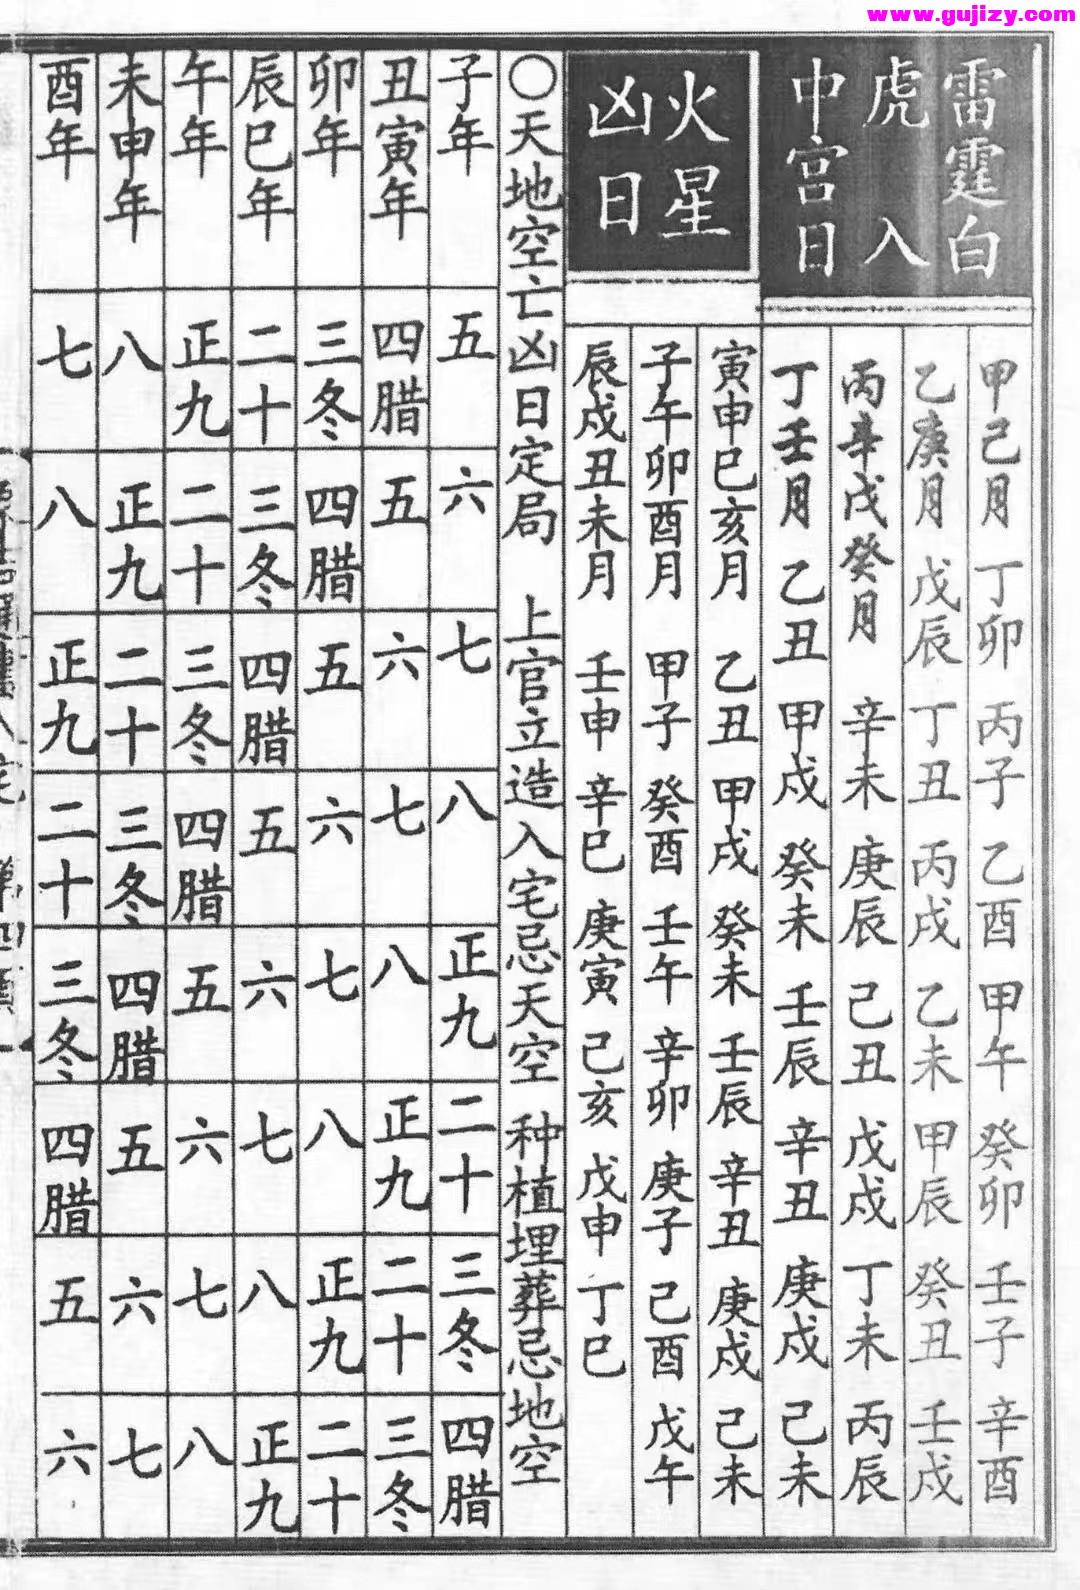 www.gujizy.com
雷霆白
虎入
中宫日
甲己月 丁卯 丙子 乙酉 甲午 癸卯 壬子 辛酉
乙庚月 戊辰 丁丑 丙戌 乙未 甲辰 癸丑 壬戌
丙辛戊癸月 辛未 庚辰 己丑 戊戌 丁未 丙辰
丁壬月 乙丑 甲戌 癸未 壬辰 辛丑 庚戌 己未
火星
凶日
寅申巳亥月 乙丑 甲戌 癸未 壬辰 辛丑 庚戌 己未
子午卯酉月 甲子 癸酉 壬午 辛卯 庚子 己酉 戊午
辰戌丑未月 壬申 辛巳 庚寅 己亥 戊申 丁巳
〇天地空亡凶日定局 上官立造入宅忌天空 种植埋葬忌地空
子年 五 六 七 八 正九 二十 三冬 四腊
丑寅年 四腊 五 六 七 八 正九 二十 三冬
卯年 三冬 四腊 五 六 七 八 正九 二十
辰巳年 二十 三冬 四腊 五 六 七 八 正九
午年 正九 二十 三冬 四腊 五 六 七 八
未申年 八 正九 二十 三冬 四腊 五 六 七
酉年 七 八 正九 二十 三冬 四腊 五 六